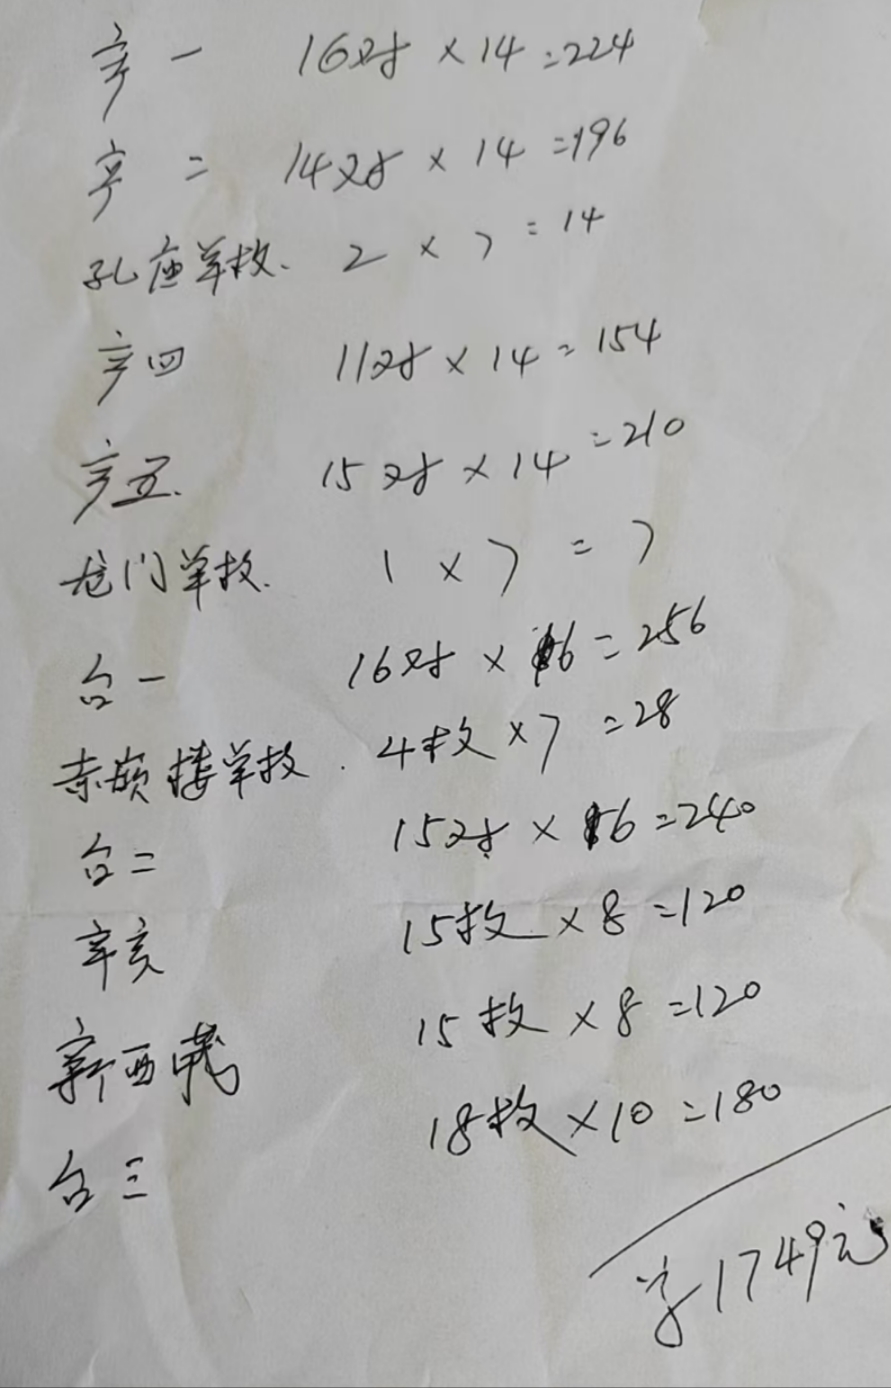 亨一 16对×14=224
亨二 14对×14=196
孔庙单枚. 2×7=14
亨四 11对×14=154
亨五. 15对×14=210
龙门单枚. 1×7=7
台一 16对×16=256
赤嵌楼单枚. 4枚×7=28
台二 15对×16=240
辛亥 15枚×8=120
新西藏 15枚×8=120
台三 18枚×10=180
1749元